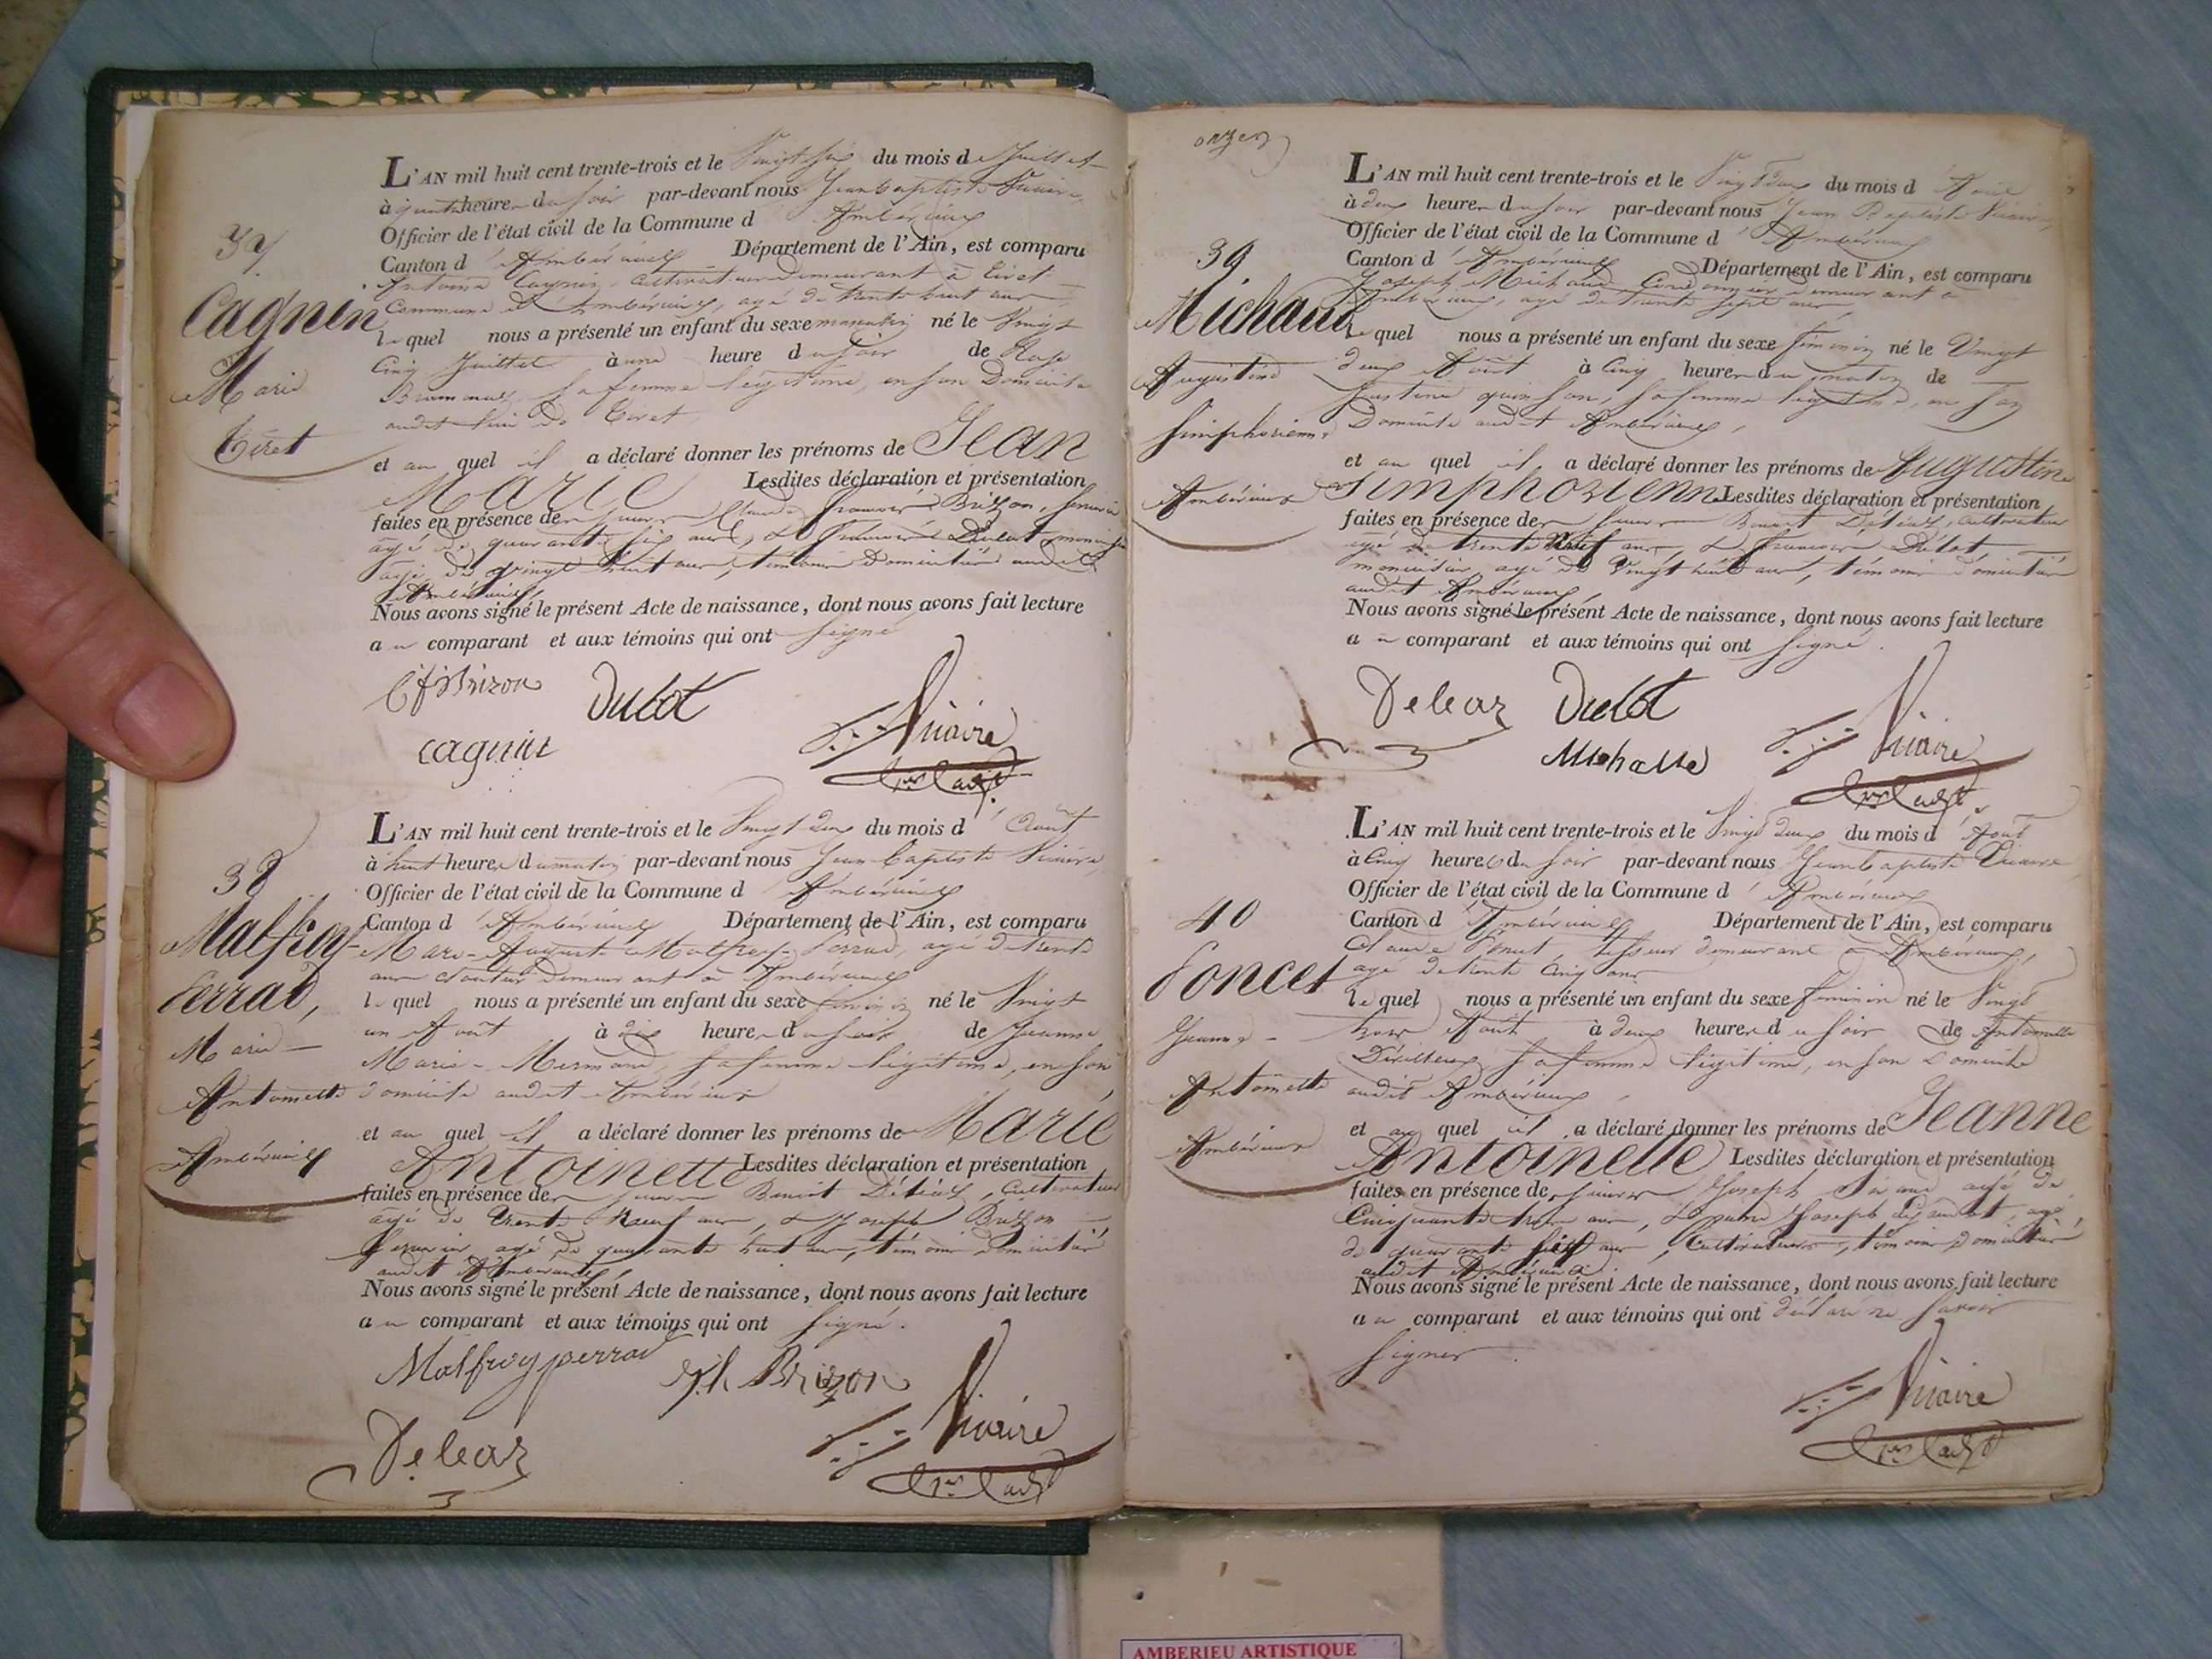 37
Cagnin
Marie
Tiret
L'AN mil huit cent trente-trois et le Vingt six du mois de Juillet
à quatre heures du soir par-devant nous Jean baptiste Vicaire,
Officier de l'état civil de la Commune d'Ambérieux
Canton d'Ambérieux Département de l'Ain, est comparu
Antoine Cagnin, cultivateur demeurant à Tiret
Commune d'Ambérieux, agé de trente huit ans
lequel nous a présenté un enfant du sexe masculin né le Vingt
Cinq Juillet à une heure du soir de
sa femme légitime, en son Domicile
audit lieu de Tiret
et au quel il a déclaré donner les prénoms de Jean
Marie Lesdites déclaration et présentation
faites en présence de Claude françois Brizon,
agé de quarante six ans, & françois Dulot, menuisier
agé de Vingt huit ans, témoins Domiciliés audit
Ambérieux,
Nous avons signé le présent Acte de naissance, dont nous avons fait lecture
au comparant et aux témoins qui ont signé
C f Brizon Dulot Vicaire
cagnin
38
Malfroy
Perrad,
Marie
Antoinette
Ambérieux
L'AN mil huit cent trente-trois et le Vingt deux du mois d'Août
à huit heures du matin par-devant nous Jean baptiste Vicaire,
Officier de l'état civil de la Commune d'Ambérieux
Canton d'Ambérieux Département de l'Ain, est comparu
Marc-Auguste Malfroy-Perrad, agé de trente
ans demeurant à Ambérieux
lequel nous a présenté un enfant du sexe féminin né le Vingt
un Août à dix heures du soir de Jeanne
Marie-Mermand, sa femme légitime, en son
domicile audit Ambérieux
et au quel il a déclaré donner les prénoms de Marie
Antoinette Lesdites déclaration et présentation
faites en présence de Benoit Déléaz, Cultivateur
agé de trente Neuf ans, & Joseph Brizon
agé de quarante huit ans, témoins domiciliés
audit Ambérieux,
Nous avons signé le présent Acte de naissance, dont nous avons fait lecture
au comparant et aux témoins qui ont signé.
Malfroy perrad Jh Brizon Vicaire
Deleaz
onze
39
Michaud
Augustine
Simphorienne
Ambérieux
L'AN mil huit cent trente-trois et le Vingt deux du mois d'Août
à deux heures du soir par-devant nous Jean Baptiste Vicaire,
Officier de l'état civil de la Commune d'Ambérieux
Canton d'Ambérieux Département de l'Ain, est comparu
Joseph Michaud Cordonnier demeurant à
Ambérieux, agé de trente sept ans
lequel nous a présenté un enfant du sexe féminin né le Vingt
deux Août à Cinq heures du matin de
Justine quinson, sa femme légitime, en son
Domicile audit Ambérieux,
et au quel il a déclaré donner les prénoms de Augustine
Simphorienne Lesdites déclaration et présentation
faites en présence de Benoit Déléaz, cultivateur
agé de trente Neuf ans, & françois Dulot
menuisier, agé de Vingt huit ans, témoins domiciliés
audit Ambérieux,
Nous avons signé le présent Acte de naissance, dont nous avons fait lecture
au comparant et aux témoins qui ont signé.
Deleaz Dulot Vicaire
40
Poncet
Jeanne
Antoinette
Ambérieux
L'AN mil huit cent trente-trois et le Vingt deux du mois d'Août
à Cinq heures du soir par-devant nous Jean baptiste Vicaire
Officier de l'état civil de la Commune d'Ambérieux
Canton d'Ambérieux Département de l'Ain, est comparu
Claude Poncet, demeurant à Ambérieux,
agé de trente Cinq ans
lequel nous a présenté un enfant du sexe féminin né le Vingt
Août à deux heures du soir de Antoinette
sa femme légitime, en son domicile
audit Ambérieux,
et au quel il a déclaré donner les prénoms de Jeanne
Antoinette Lesdites déclaration et présentation
faites en présence de Joseph agé de
Cinquante trois ans, & Joseph agé
de quarante ans, Cultivateurs, témoins domiciliés
audit Ambérieux
Nous avons signé le présent Acte de naissance, dont nous avons fait lecture
au comparant et aux témoins qui ont déclaré ne savoir
signer.
Vicaire
AMBERIEU ARTISTIQUE